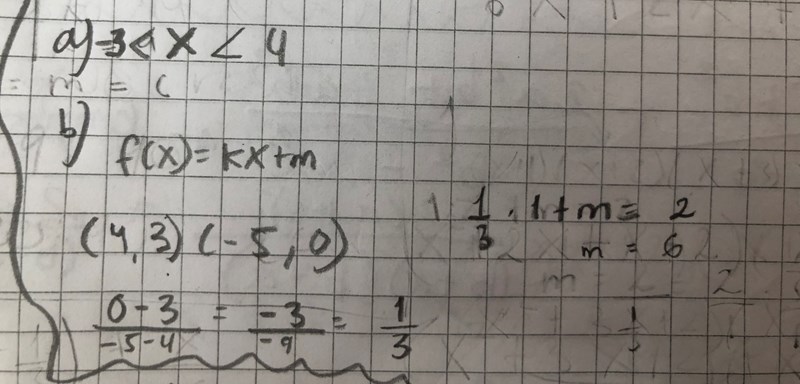 a) -3 < x < 4
b)
f(x) = kx+m
(4,3) (-5,0)
0-3/-5-4 = -3/-9 = 1/3
1/3 · 1 + m = 2
m = 6